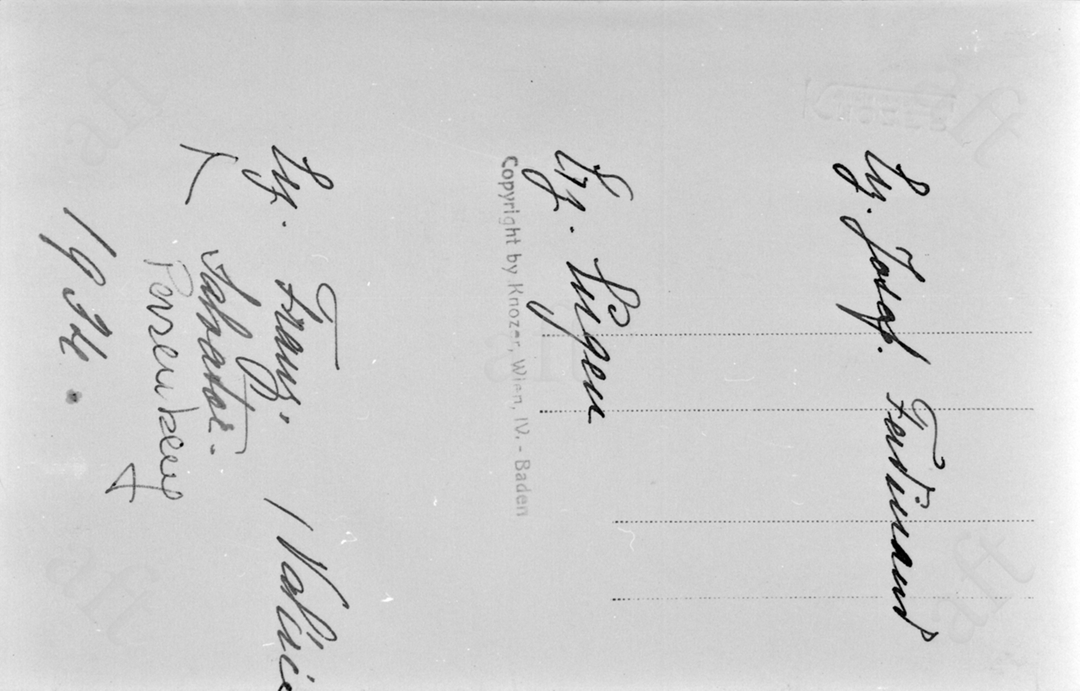 Ez. Josef. Ferdinand
Erz. Eugen
Copyright by Knozer, Wien, IV. - Baden
Ez. Franz.
Salvator.
Persenbeug
1934.